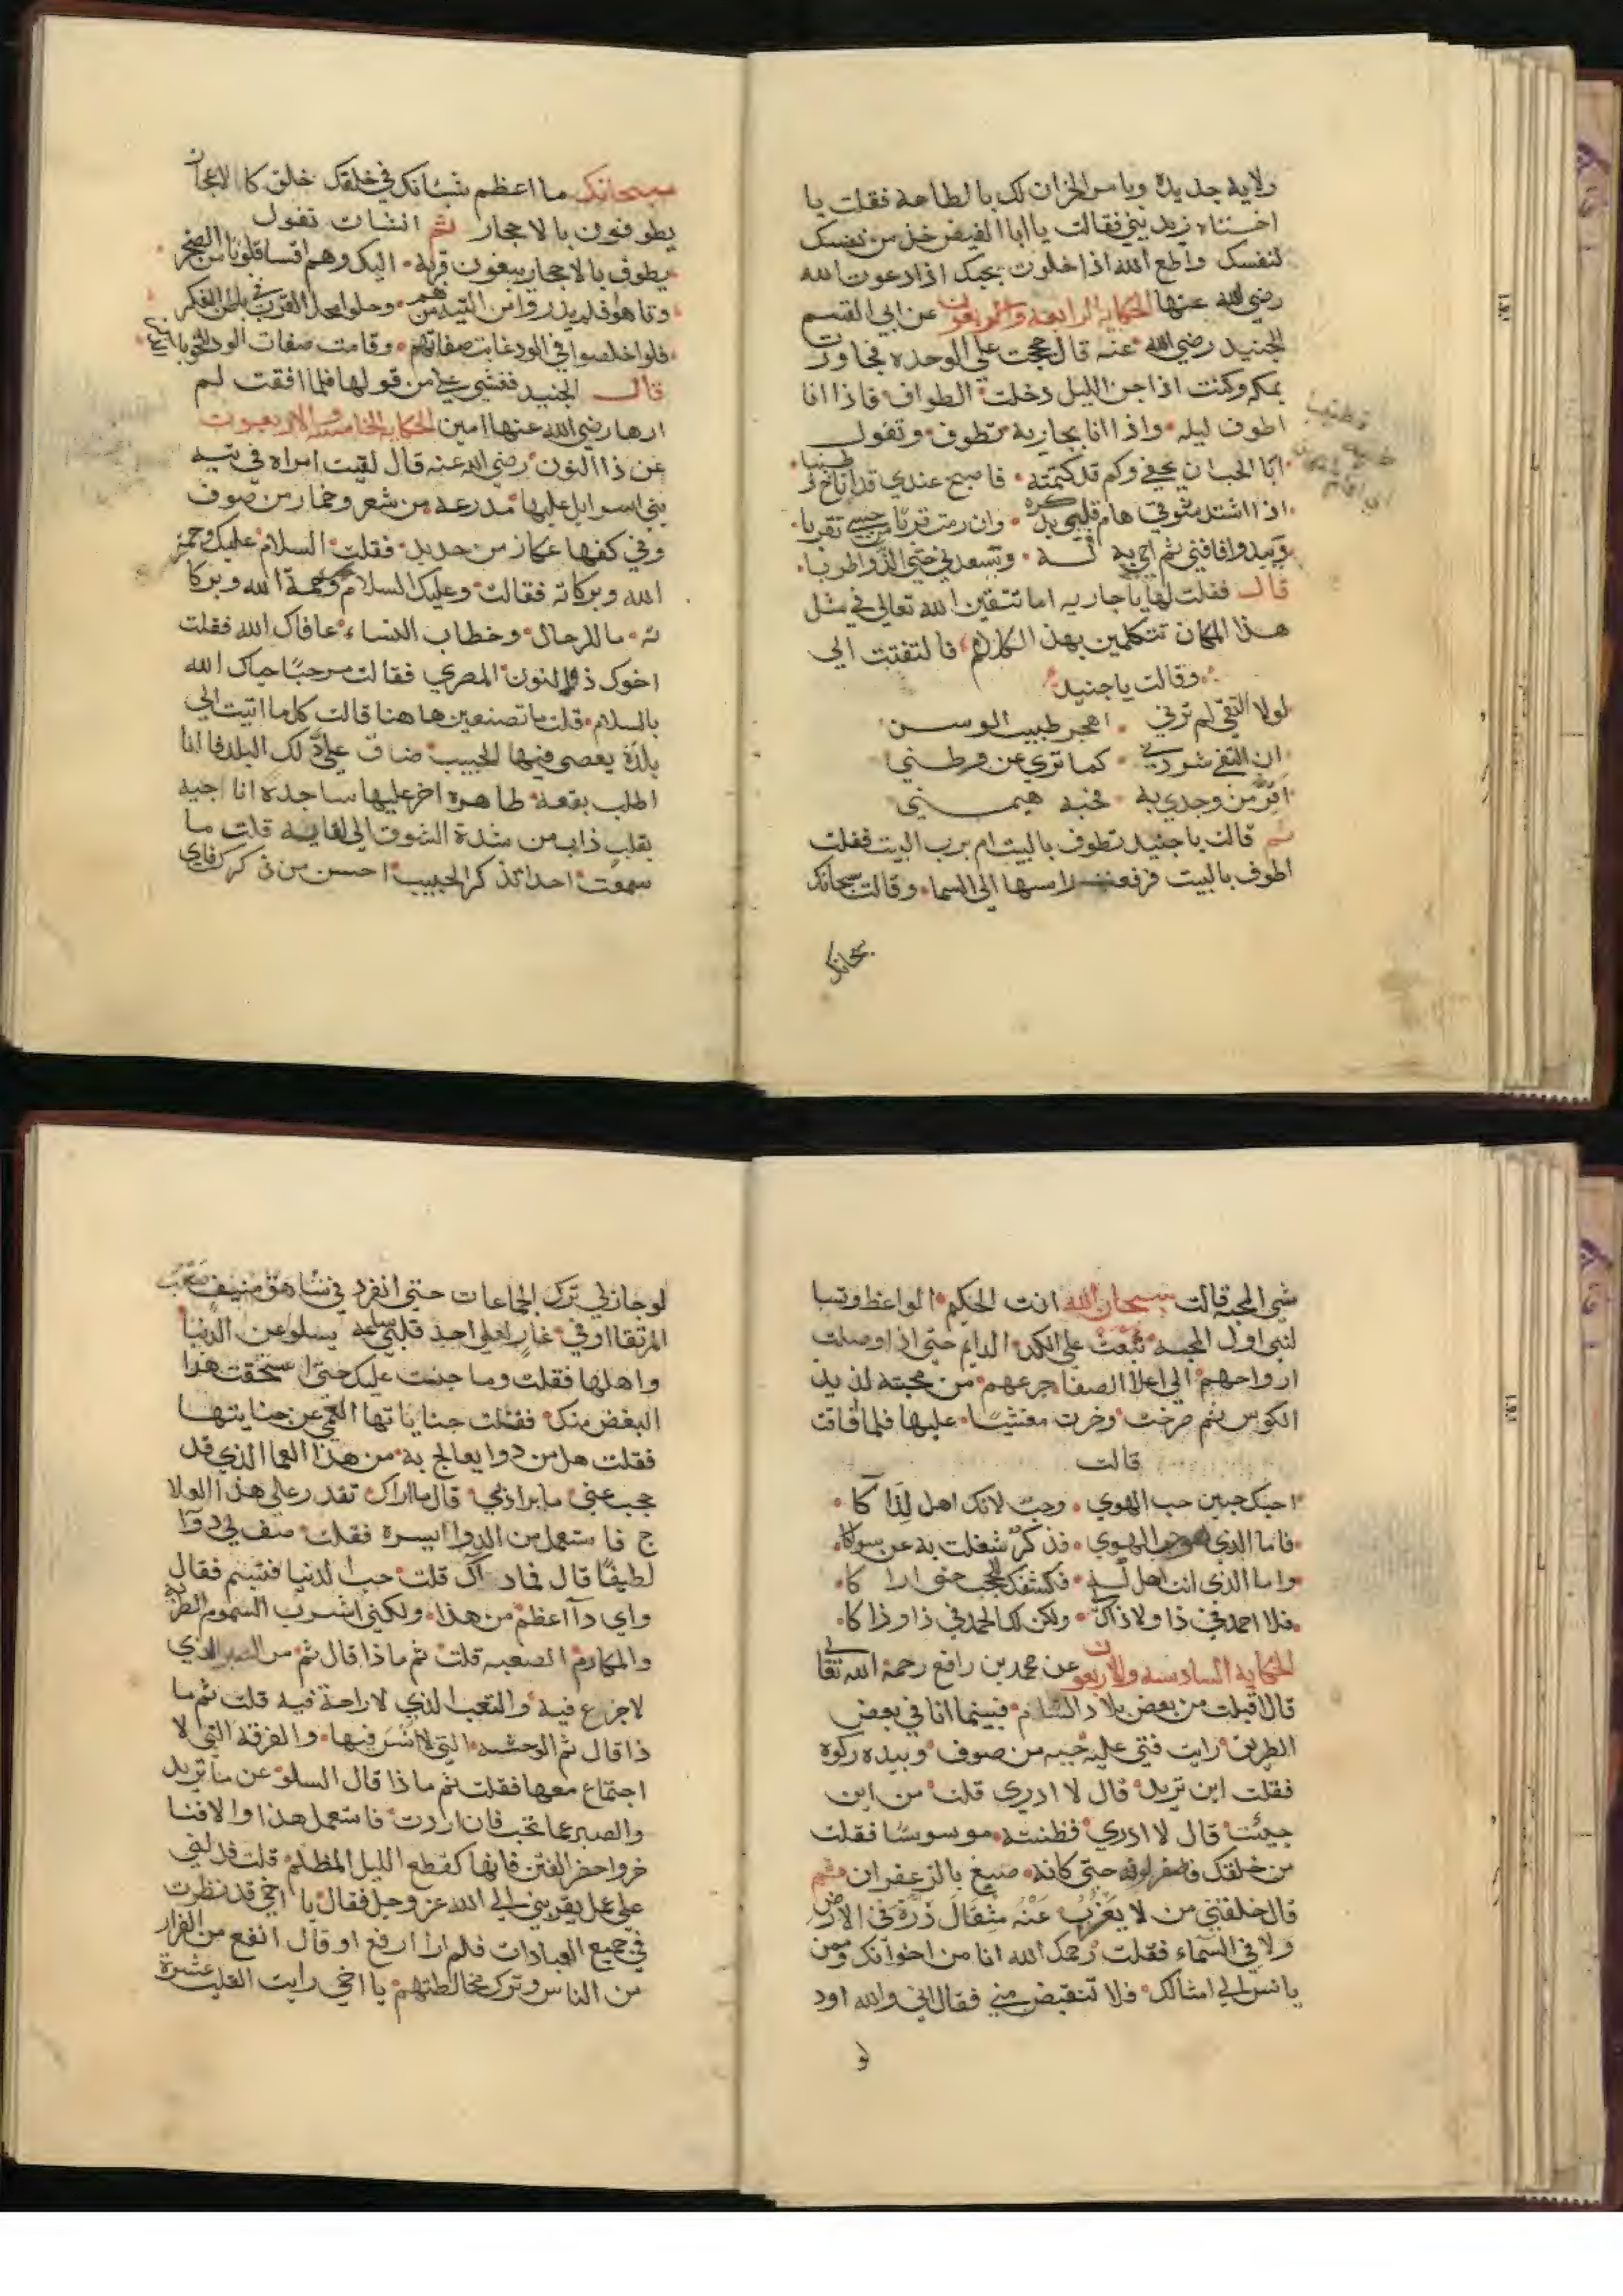 ولاية جديدة ويامر الخزان لك بالطاعة فقلت يا
اختاه زيديني فقالت يا ابا الفيض خذ من نفسك
لنفسك واطع الله اذا خلوت يجبك اذا دعوت الله
رضي الله عنها الحكاية الرابعة والاربعون عن ابي القسم
الجنيد رضي الله عنه قال حججت علي الوحده فجاورت
بمكه وكنت اذا جن الليل دخلت الطواف فاذا انا
اطوف ليله واذا انا بجارية تطوف وتقول
ابا الحب ان يخفي وكم قد كتمته فاصبح عندي قد اناخ وطنبا
اذا اشتد شوقي هام قلبي بذكره وان رمت قربا من حبيبي تقربا
ويبدوا فافني ثم احي به له ويسعدني حتي الذ واطربا
قال فقلت لها يا جاريه اما تتقين الله تعالي في مثل
هذا المكان تتكلمين بهذا الكلام فالتفتت الي
وقالت يا جنيد
لولا التقي لم ترني اهجر طيب الوسن
ان التقي شردني كما تري عن وطني
افر من وجدي به فحبه هيمني
ثم قالت يا جنيد تطوف بالبيت ام برب البيت فقلت
اطوف بالبيت فرفعت راسها الي السما وقالت سبحانك
سبحانك
سبحانك ما اعظم شانك في خلقك خلق كالاحجار
يطوفون بالاحجار ثم انشات تقول
يطوف بالاحجار يبغون قربة اليك وهم اقسا قلوبا من الصخر
وتاهوا فلم يدروا من التيه من هم وحلوا محل القرب في باطن الفكر
فلو اخلصوا في الود غابت صفاتهم وقامت صفات الود للحق بالذكر
قال الجنيد فغشي علي من قولها فلما افقت لم
ارها رضي الله عنها امين الحكايه الخامسة والاربعون
عن ذا النون رضي الله عنه قال لقيت امراه في تيه
بني اسرايل عليها مدرعه من شعر وخمار من صوف
وفي كفها عكاز من حديد فقلت السلام عليك ورحمة
الله وبركاته فقالت وعليك السلام ورحمة الله وبركا
ته ما للرجال وخطاب النساء عافاك الله فقلت
اخوك ذو النون المصري فقالت مرحبا حياك الله
بالسلام قلت ما تصنعين هاهنا قالت كل ما اتيت الي
بلدة يعصي فيها الحبيب ضاق علي ذلك البلد فانا
اطلب بقعة طاهرة اخر عليها ساجدة اناجيه
بقلب ذاب من شدة الشوق الي لقايه قلت ما
سمعت احدا يذكر الحبيب احسن من ذكرك فاي
شي المحبه قالت سبحان الله انت الحكيم الواعظ وتسا
لني اول المحبه تبعث علي الكد الدايم حتي اذا وصلت
ارواحهم الي اعلا الصفا جرعهم من محبته لذيذ
الكوس ثم صرخت وخرت مغشيا عليها فلما افاقت
قالت
احبك حبين حب الهوي وحب لانك اهل لذاكا
فاما الذي هو حب الهوي فذكر شغلت به عن سواكا
واما الذي انت اهل له فكشفك للحجب حتي اراكا
فلا احمد في ذا ولا ذاك ولكن لك الحمد في ذا وذاكا
الحكاية السادسه والاربعون عن محمد بن رافع رحمة الله تعالي
قال اقبلت من بعض بلاد الشام فبينما انا في بعض
الطريق رايت فتي عليه جبه من صوف وبيده ركوه
فقلت اين تريد قال لا ادري قلت من اين
جيئت قال لا ادري فظننته موسوسا فقلت
من خلقك فاصفر لونه حتي كانه صبغ بالزعفران ثم
قال خلقني من لا يعزب عنه مثقال ذرة في الارض
ولا في السماء فقلت رحمك الله انا من اخوانك وممن
يانس الي امثالك فلا تنقبض مني فقال اني والله اود
لو
لو جاز لي ترك الجماعات حتي انفرد في شاهق منيف صعب
المرتقا او في غار لعلي اجد قلبي ساعه يسلوا عن الدنيا
واهلها فقلت وما جنت عليك حتي استحقت هذا
البغض منك فقلت جناياتها العمي عن جنايتها
فقلت هل من دوا يعالج به من هذا العما الذي قد
حجب عني ما يراد بي قال ما اراك تقدر علي هذا العلا
ج فاستعمل من الدوا ايسره فقلت صف لي دوآ
لطيفا قال فما دآك قلت حب الدنيا فتبسم فقال
واي دآ اعظم من هذا ولكني اشرب السموم الطرية
والمكارم الصعبه قلت ثم ماذا قال ثم من الصبر الذي
لا جزع فيه والتعب الذي لا راحة فيه قلت ثم ما
ذا قال ثم الوحشه التي لا انس فيها والفرقة التي لا
اجتماع معها فقلت ثم ماذا قال السلو عن ما تريد
والصبر عما تحب فان اردت فاستعمل هذا والا فتا
خر واحذر الفتن فانها كقطع الليل المظلم قلت فدلني
علي عمل يقربني الي الله عز وجل فقال يا اخي قد نظرت
في جميع العبادات فلم ارا ارفع او قال انفع من الفرار
من الناس وترك مخالطتهم يا اخي رايت القلب عشرة